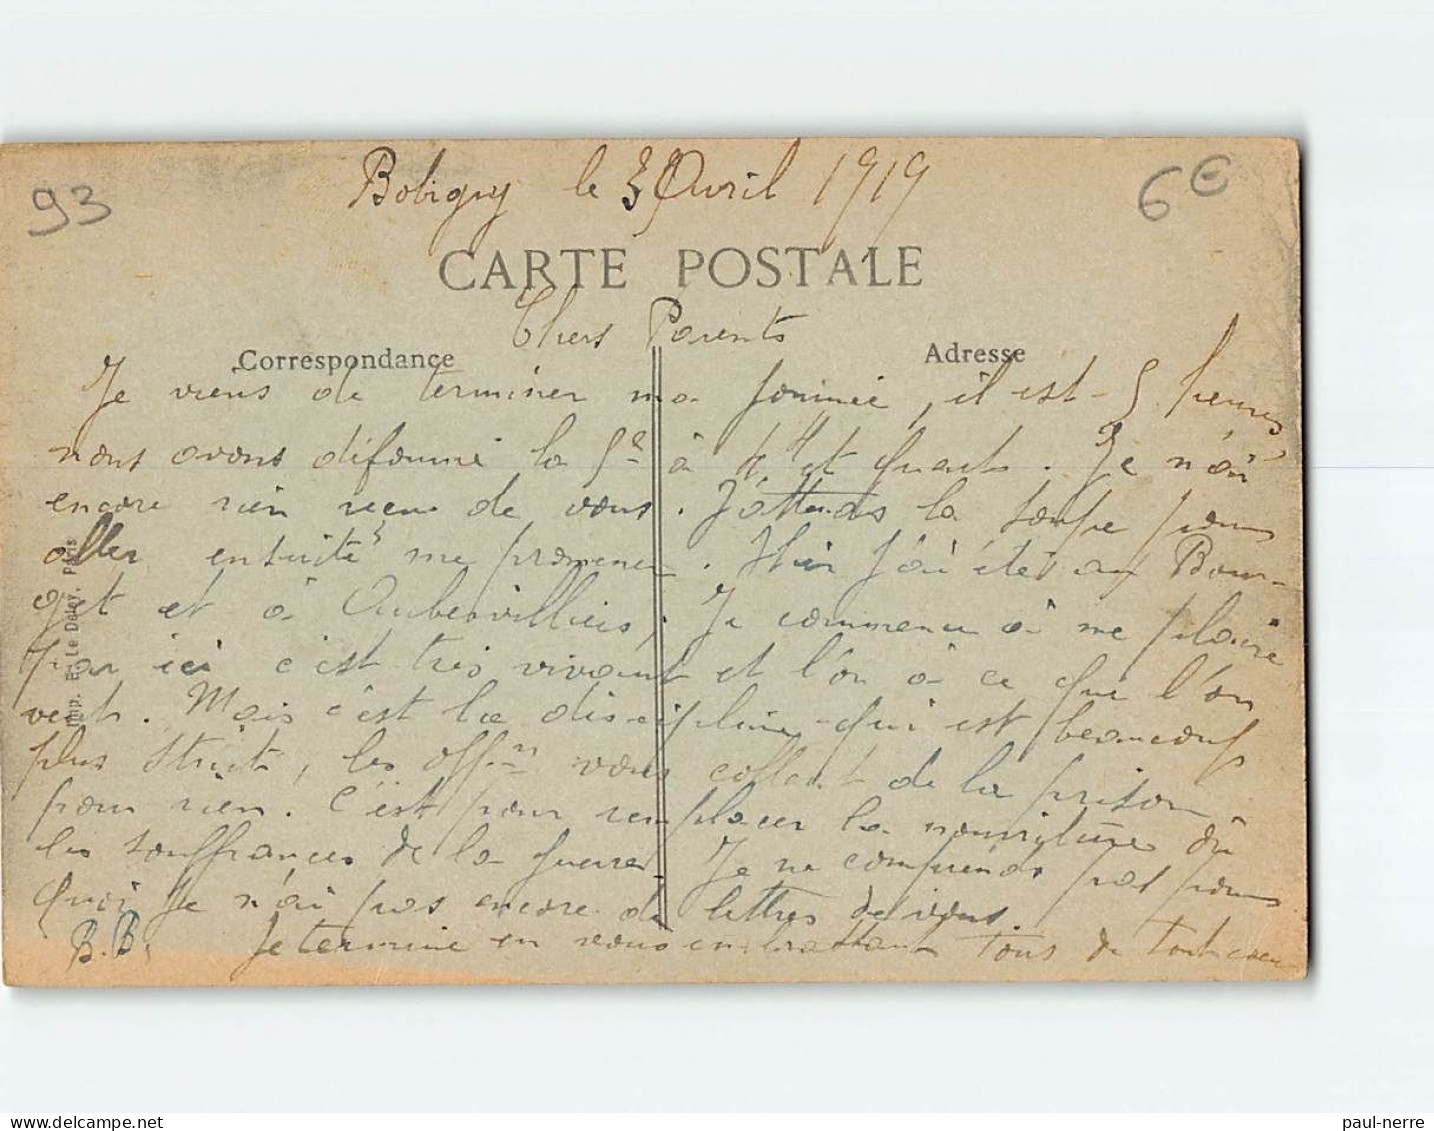 93
Bobigny le 3 Avril 1919
6€
CARTE POSTALE
Chers Parents
Correspondance
Adresse
Je viens de terminer ma journée, il est 5 heures
nous avons défourné la 5e à 4H et quart. Je n'ai
encore rien reçu de vous. J'attends la soupe pour
aller ensuite me promener. Hier j'ai été au Bour-
get et à Aubervilliers, Je commence à me plaire
par ici c'est très vivant et l'on a ce que l'on
veut. Mais c'est la discipline qui est beaucoup
plus stricte, les offers vous collent de la prison
pour rien. C'est pour remplacer la nourriture où
les souffrances de la guerre. Je ne comprends pas pour
quoi je n'ai pas encore de lettres de vous.
B.B. Je termine en vous embrassant tous de tout coeur
Imp. E. Le Deley, Paris
paul-nerre